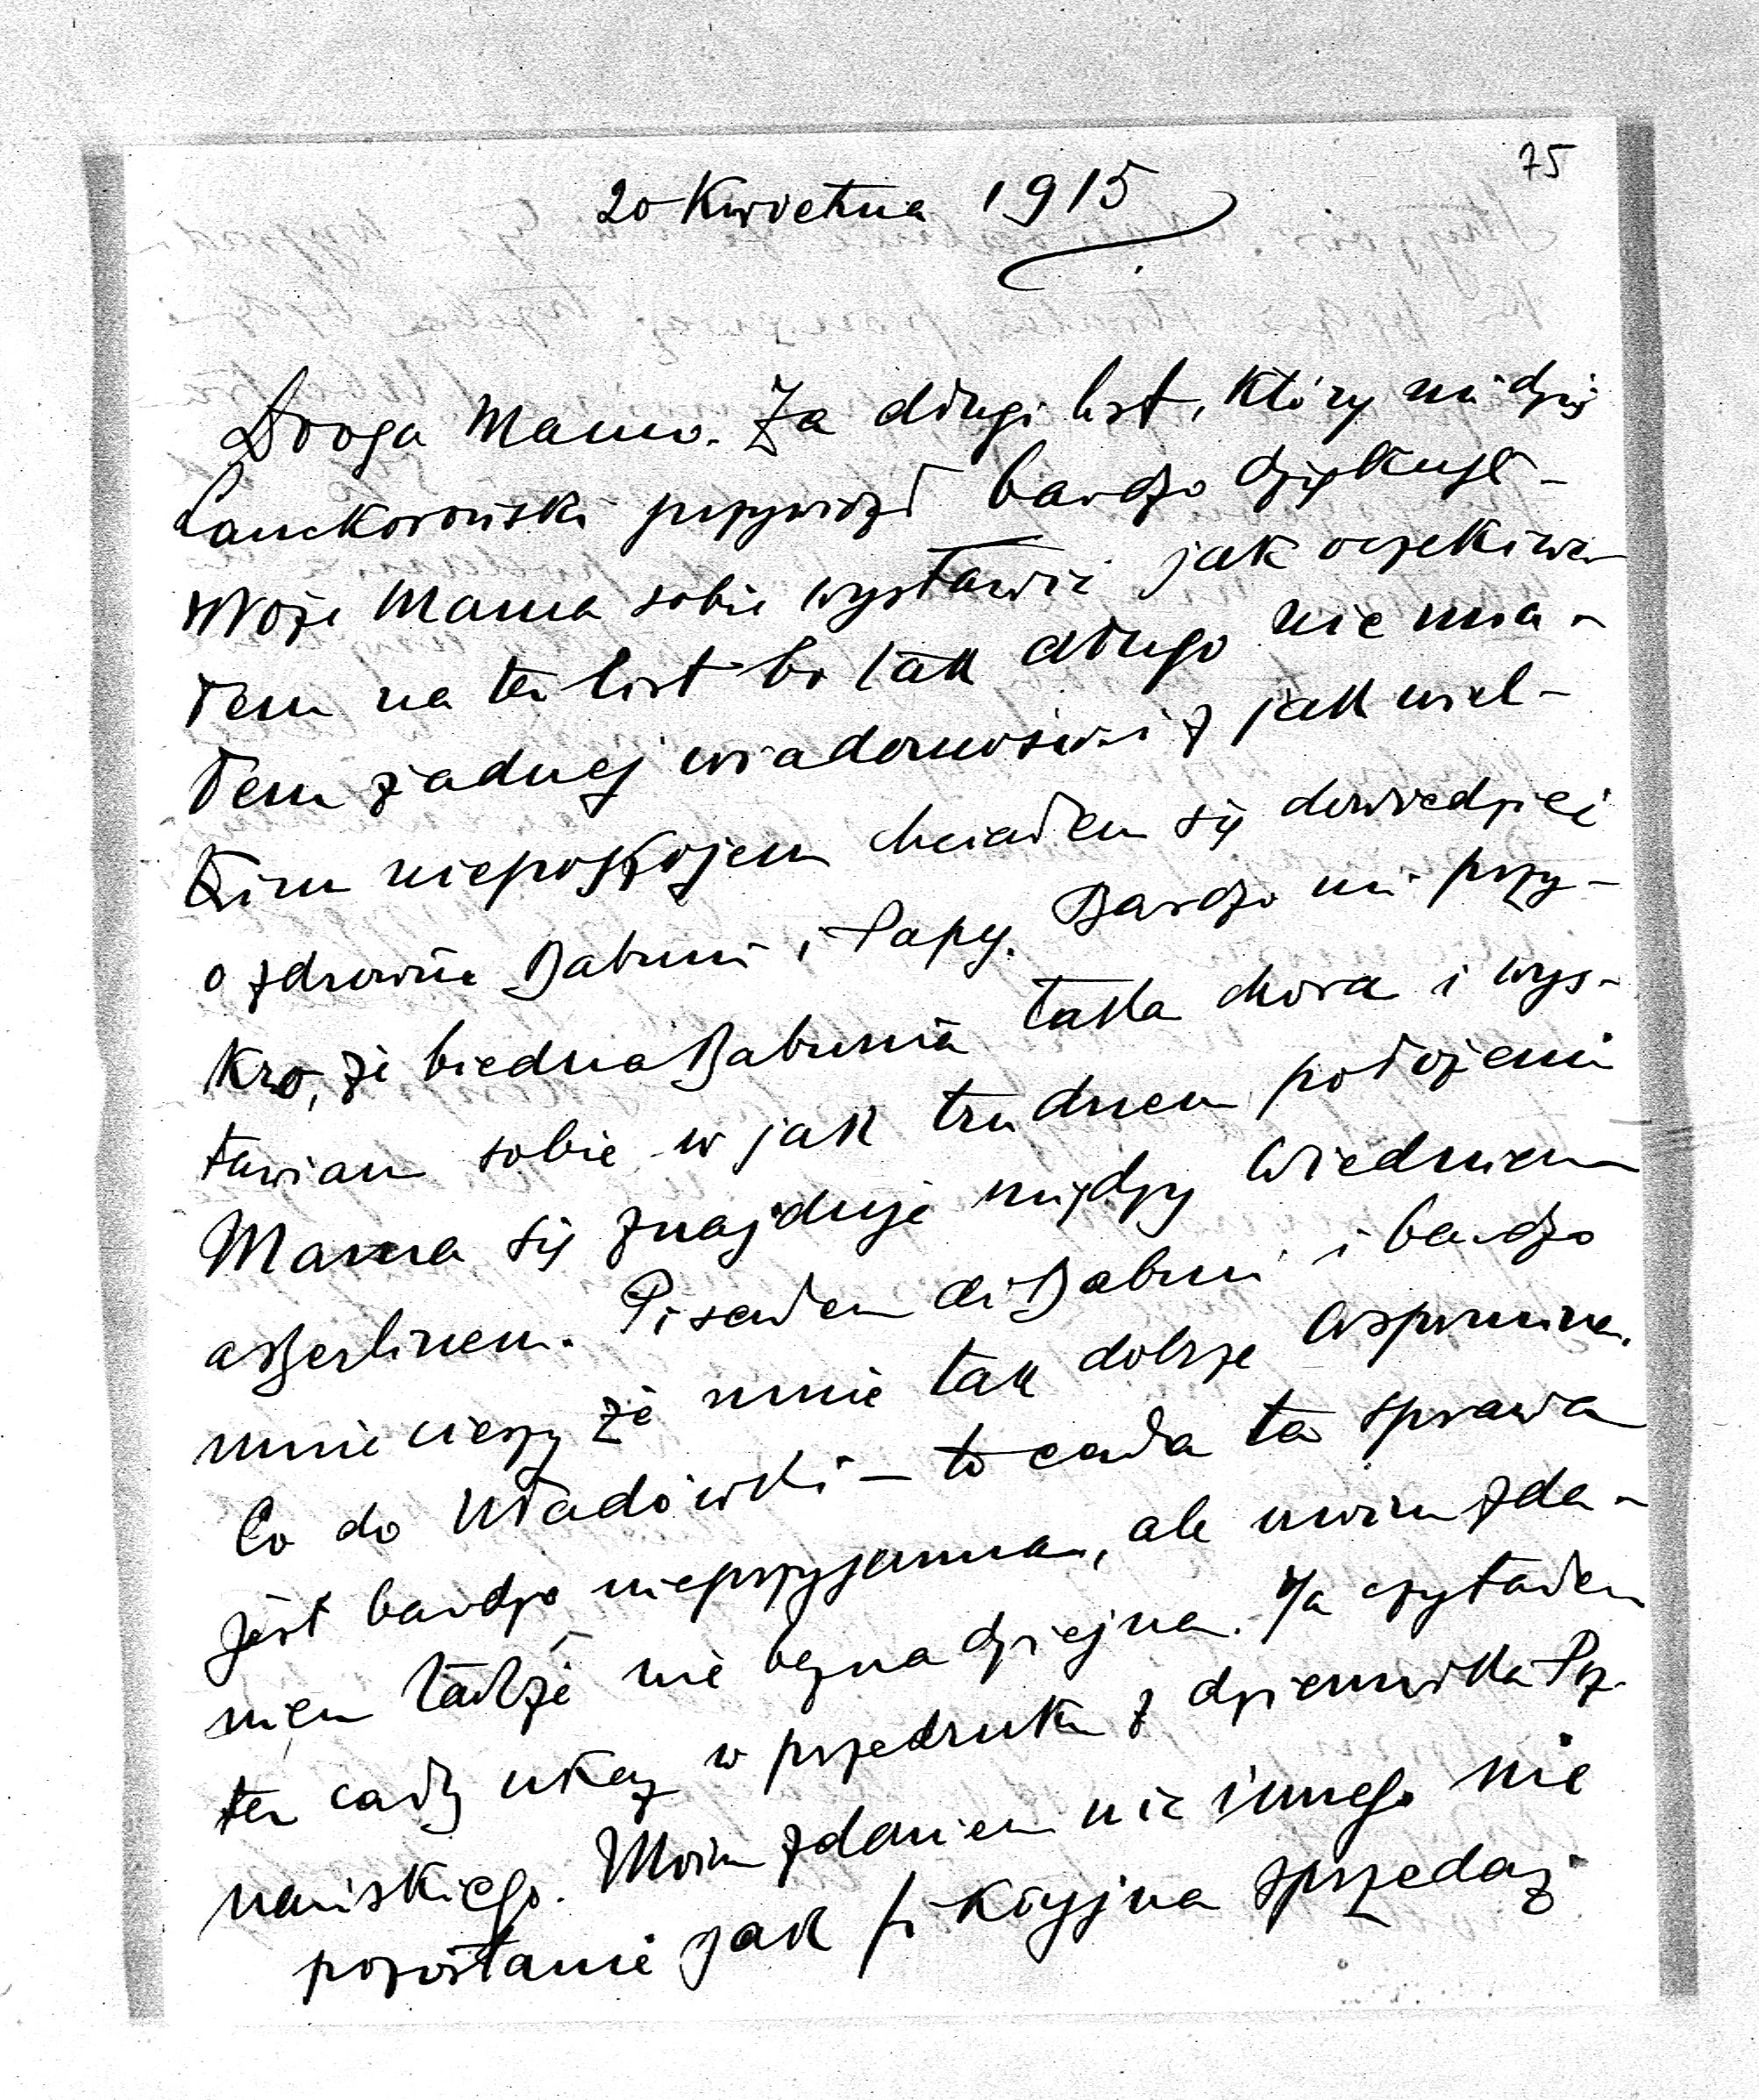 75
20 Kwietnia 1915
Droga Mamo. Za długi list, który mi dziś
Lanckoroński przywiózł bardzo dziękuję -
Może Mama sobie wystawić jak oczekiwa
łem na ten list bo tak długo nie mia -
łem żadnej wiadomości i z jak wiel -
kim niepokojem chciałem się dowiedzieć
o zdrowie Babuni i Papy. Bardzo mi przy -
kro, że biedna Babunia taka chora i wys -
tawiam sobie w jak trudnem położeniu
Mama się znajduje między Wiedniem
a Berlinem. Pisałem do Babuni i bardzo
mnie cieszy że mnie tak dobrze wspomina.
Co do Uładówki — to cała ta sprawa
jest bardzo nieprzyjemna, ale moim zda -
niem także nie beznadziejna. Ja czytałem
ten cały ukaz w przedruku z dziennika Poz
nańskiego. Moim zdaniem nic innego nie
pozostanie jak fikcyjna sprzedaż